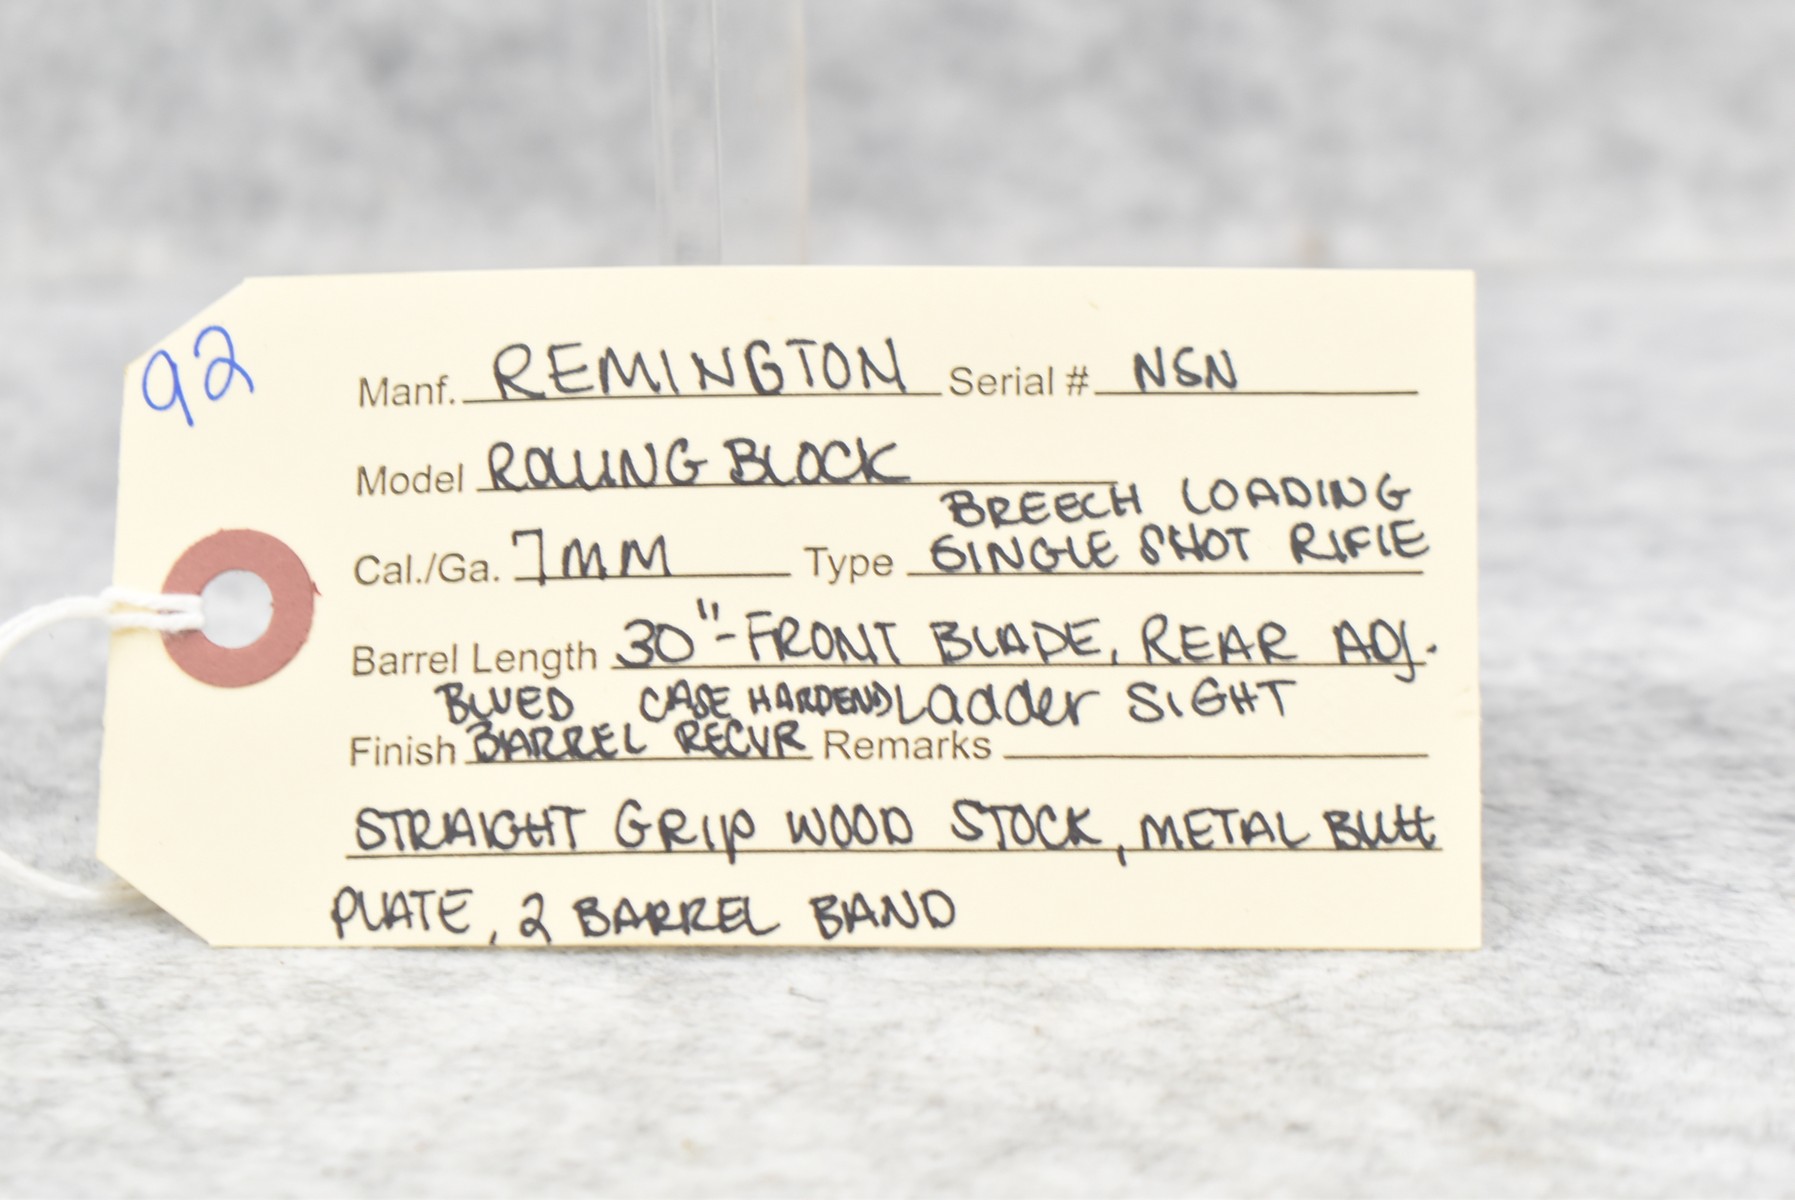 92
Manf. REMINGTON Serial # NSN
Model ROLLING BLOCK
BREECH LOADING
Cal./Ga. 7MM Type SINGLE SHOT RIFLE
Barrel Length 30"-FRONT BLADE, REAR ADJ.
BLUED CASE HARDEND Ladder SIGHT
Finish BARREL RECVR Remarks
STRAIGHT GRIP WOOD STOCK, METAL BUtt
PLATE, 2 BARREL BAND